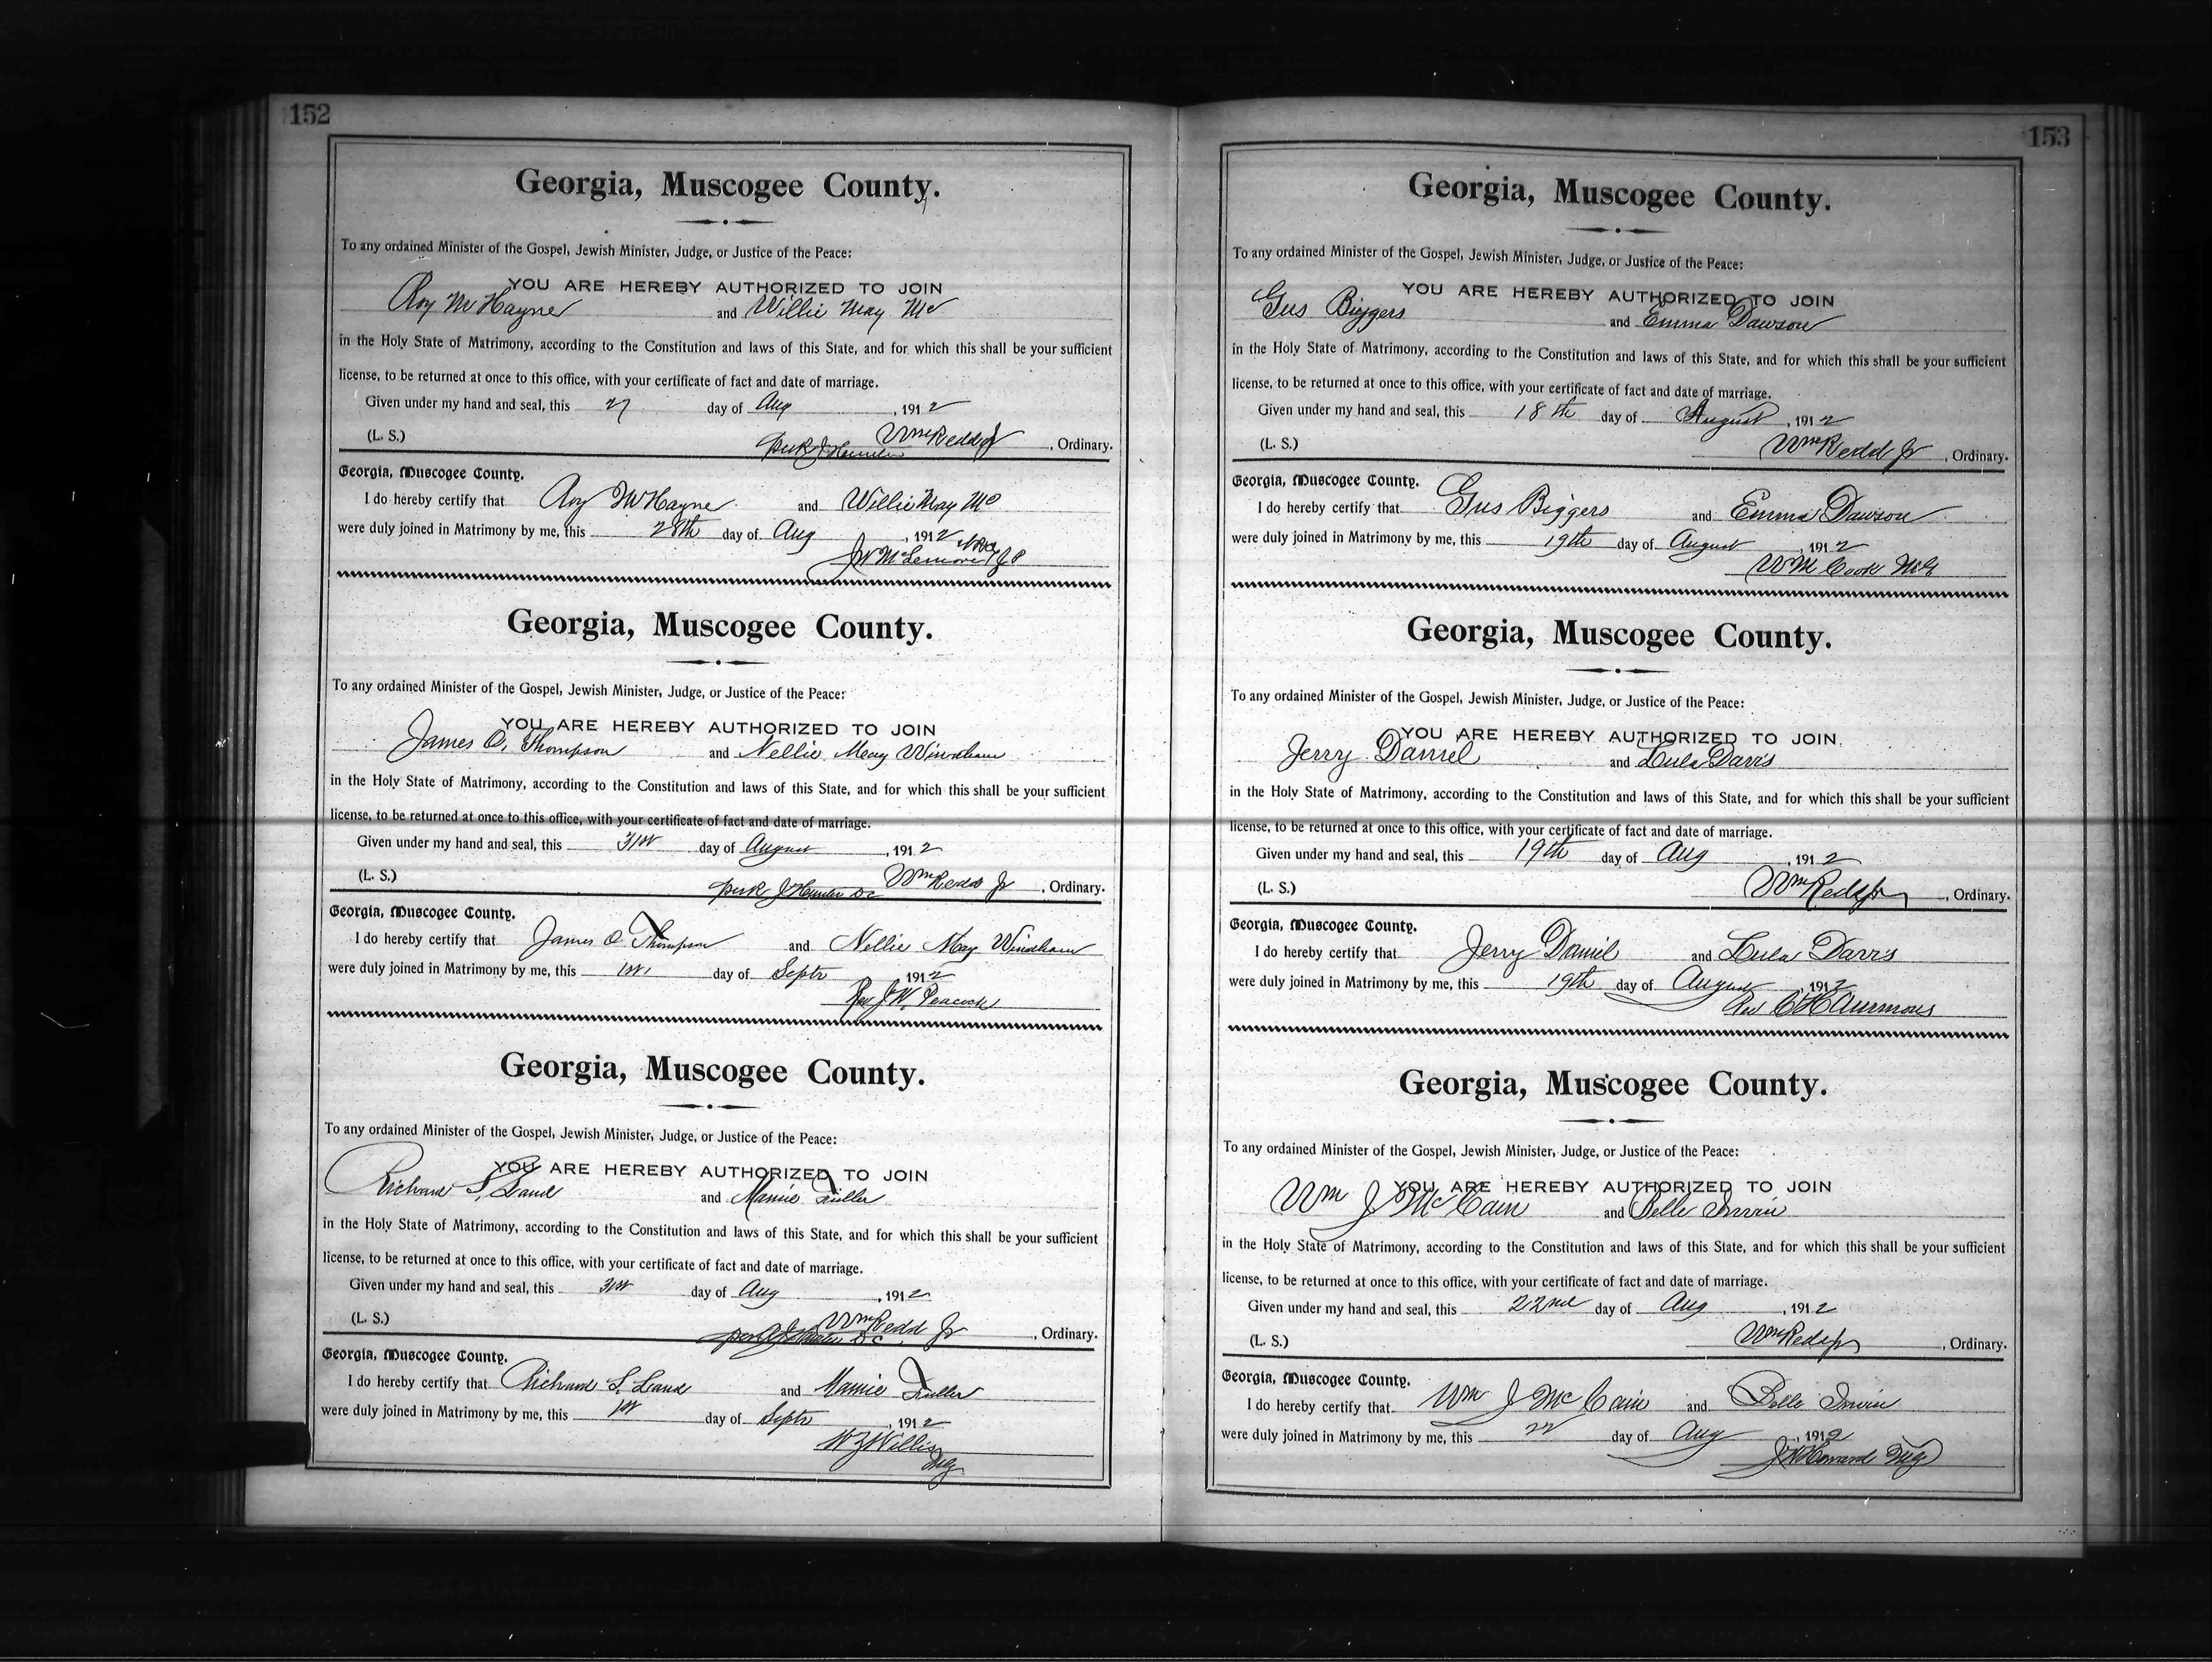 152
Georgia, Muscogee County.
To any ordained Minister of the Gospel, Jewish Minister, Judge, or Justice of the Peace:
YOU ARE HEREBY AUTHORIZED TO JOIN
Roy McHayne and Willie May Mc
in the Holy State of Matrimony, according to the Constitution and laws of this State, and for which this shall be your sufficient
license, to be returned at once to this office, with your certificate of fact and date of marriage.
Given under my hand and seal, this 27 day of Aug, 1912
(L. S.) Wm Redd Jr, Ordinary.
Georgia, Muscogee County.
I do hereby certify that Roy McHayne and Willie May Mc
were duly joined in Matrimony by me, this 28th day of Aug, 1912
JW McLemore
Georgia, Muscogee County.
To any ordained Minister of the Gospel, Jewish Minister, Judge, or Justice of the Peace:
YOU ARE HEREBY AUTHORIZED TO JOIN
James O. Thompson and Nellie May Windham
in the Holy State of Matrimony, according to the Constitution and laws of this State, and for which this shall be your sufficient
license, to be returned at once to this office, with your certificate of fact and date of marriage.
Given under my hand and seal, this 31st day of August, 1912
(L. S.) Wm Redd Jr, Ordinary.
Georgia, Muscogee County.
I do hereby certify that James O. Thompson and Nellie May Windham
were duly joined in Matrimony by me, this 1st day of Septr 1912
Rev J.W. Peacock
Georgia, Muscogee County.
To any ordained Minister of the Gospel, Jewish Minister, Judge, or Justice of the Peace:
YOU ARE HEREBY AUTHORIZED TO JOIN
Richard S. Land and Mamie Fuller
in the Holy State of Matrimony, according to the Constitution and laws of this State, and for which this shall be your sufficient
license, to be returned at once to this office, with your certificate of fact and date of marriage.
Given under my hand and seal, this 31st day of Aug, 1912
(L. S.) Wm Redd Jr, Ordinary.
Georgia, Muscogee County.
I do hereby certify that Richard S. Land and Mamie Fuller
were duly joined in Matrimony by me, this 1st day of Septr, 1912
WZ Willis
Mg
153
Georgia, Muscogee County.
To any ordained Minister of the Gospel, Jewish Minister, Judge, or Justice of the Peace:
YOU ARE HEREBY AUTHORIZED TO JOIN
Gus Biggers and Emma Dawson
in the Holy State of Matrimony, according to the Constitution and laws of this State, and for which this shall be your sufficient
license, to be returned at once to this office, with your certificate of fact and date of marriage.
Given under my hand and seal, this 18th day of August, 1912
(L. S.) Wm Redd Jr, Ordinary.
Georgia, Muscogee County.
I do hereby certify that Gus Biggers and Emma Dawson
were duly joined in Matrimony by me, this 19th day of August, 1912
WM Cook MG
Georgia, Muscogee County.
To any ordained Minister of the Gospel, Jewish Minister, Judge, or Justice of the Peace:
YOU ARE HEREBY AUTHORIZED TO JOIN
Jerry Daniel and Lula Davis
in the Holy State of Matrimony, according to the Constitution and laws of this State, and for which this shall be your sufficient
license, to be returned at once to this office, with your certificate of fact and date of marriage.
Given under my hand and seal, this 19th day of Aug, 1912
(L. S.) Wm Redd Jr, Ordinary.
Georgia, Muscogee County.
I do hereby certify that Jerry Daniel and Lula Davis
were duly joined in Matrimony by me, this 19th day of August, 1912
Rev
Georgia, Muscogee County.
To any ordained Minister of the Gospel, Jewish Minister, Judge, or Justice of the Peace:
YOU ARE HEREBY AUTHORIZED TO JOIN
Wm J McCain and Belle Irvin
in the Holy State of Matrimony, according to the Constitution and laws of this State, and for which this shall be your sufficient
license, to be returned at once to this office, with your certificate of fact and date of marriage.
Given under my hand and seal, this 22nd day of Aug, 1912
(L. S.) Wm Redd Jr, Ordinary.
Georgia, Muscogee County.
I do hereby certify that Wm J McCain and Belle Irvin
were duly joined in Matrimony by me, this 22 day of Aug, 1912
JH Howard Mg